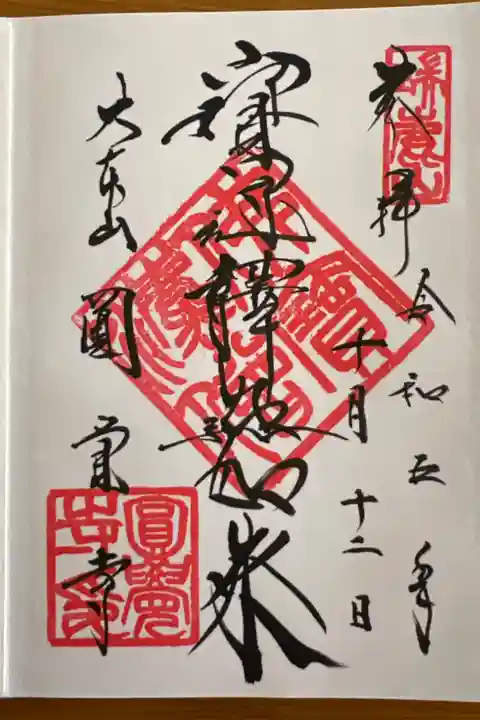 奉拝 令和五年
十月十二日
寳冠釋迦如来
大本山 圓覚寺
瑞鹿山